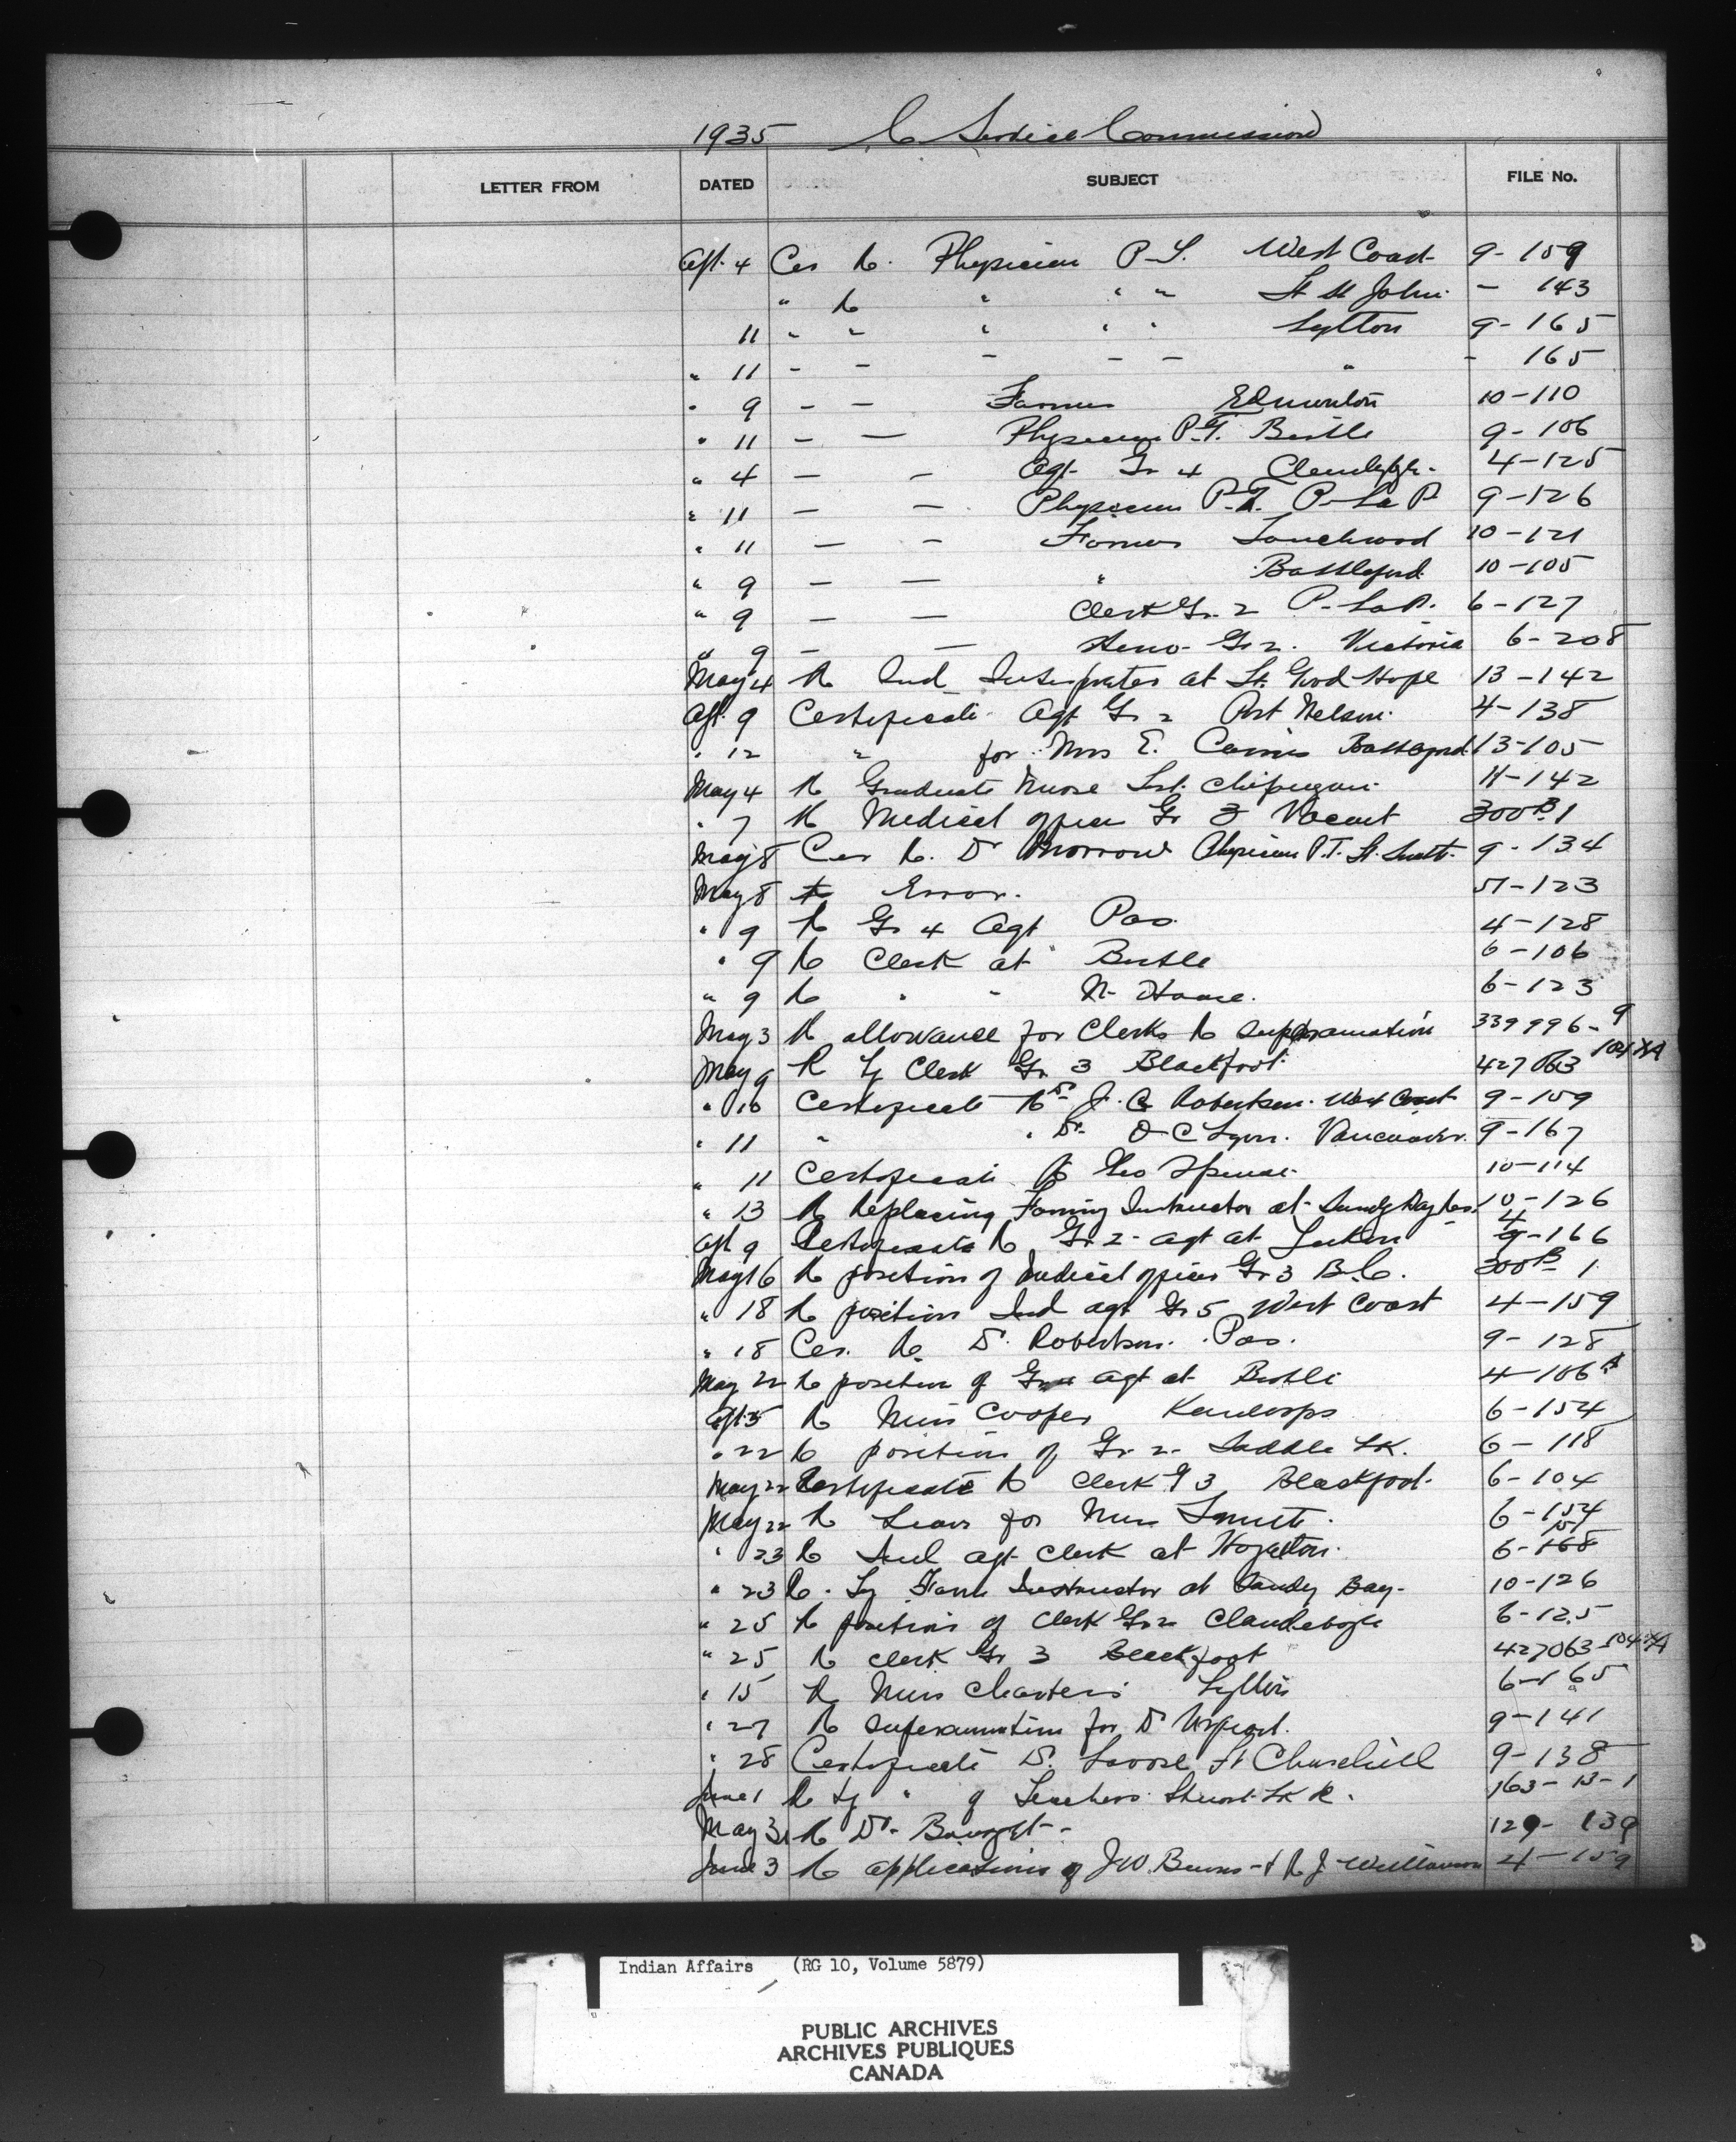 1935 C Service Commission
LETTER FROM DATED SUBJECT FILE No.
Apl. 4 Cer Re. Physician P-T. West Coast 9-159
" Re " " " Ft St John - 143
11 " " " " " Lytton 9-165
" 11 - - - - - " - 165
" 9 - - Farmer Edmonton 10-110
" 11 - - Physician P.T. Birtle 9-106
" 4 - - Agt Gr 4 Clandeboye 4-125
" 11 - - Physician P.T. P-La P 9-126
" 11 - - Farmer Touchwood 10-121
" 9 - - " Battleford 10-105
" 9 - - Clerk Gr. 2 P-La P. 6-127
" 9 - - Steno Gr 2. Victoria 6-208
May 4 Re Ind Interpreter at Ft. Good Hope 13-142
Apl. 9 Certificate Agt Gr 2 Port Nelson 4-138
" 12 " for Mrs E. Battleford 13-105
May 4 Re Graduate Nurse Chipewyan 11-142
" 7 Re Medical Officer Gr 3 Vacant 300B-1
May 8 Cer Re. Dr Morrow Physician P.T. Ft. Smith 9-134
May 8 Re Error. 51-123
" 9 Re Gr 4 Agt Pas 4-128
" 9 Re Clerk at Birtle 6-106
" 9 Re " " N- House. 6-123
May 3 Re allowance for Clerks Re Superannuation 339996-9
May 9 R Ty Clerk Gr 3 Blackfoot 427063 104 XA
" 10 Certificate Re Dr J. C Robertson West Coast 9-159
" 11 " " Dr. O C Lyon. Vancouver. 9-167
" 11 Certificate Re Geo Spence 10-114
" 13 Re Replacing Farming Instructor at Sandy Bay Res. 10-126
Apl 9 Certificate Re Gr 2 - agt at 4 9-166
May 16 Re position of Medical Officer Gr 3 B.C. 300B-1
" 18 Re position Ind agt Gr 5 West Coast 4-159
" 18 Cer. Re. Dr. Robertson. Pas. 9-128
May 22 Re position of agt at Birtle 4-106 A
Apl. 5 Re Miss Cooper Kamloops 6-154
" 22 Re position of Gr. 2 - Saddle Lk. 6-118
May 22 Certificate Re Clerk G 3 Blackfoot 6-104
May 22 Re Leave for Miss Smith. 6-154
" 23 Re Ind agt clerk at Hazelton. 6-168 151
" 23 Re. Ty Farm Instructor at Sandy Bay- 10-126
" 25 Re position of Clerk Gr 2 Clandeboye 6-125
" 25 Re clerk Gr 3 Blackfoot 427063-104 XA
" 15 Re Miss Charters Lytton 6-165
" 27 Re Superannuation for Dr Urquhart. 9-141
" 28 Certificate Dr. Ft Churchill 9-138
June 1 Re Ty " of Teachers Stuart Lk R. 163-13-1
May 31 Re Dr. 129-139
June 3 Re applications of J W. Burns & R J Williamson 4-159
Indian Affairs (RG 10, Volume 5879)
PUBLIC ARCHIVES
ARCHIVES PUBLIQUES
CANADA